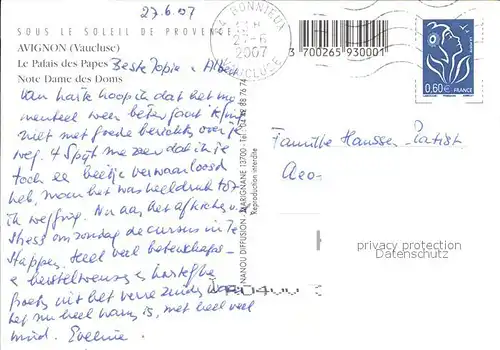 27.6.07
SOUS LE SOLEIL DE PROVENCE
AVIGNON (Vaucluse)
Le Palais des Papes
Note Dame des Doms
Beste Jopie & Albert
Van harte hoop ik dat het mo
menteel weer beter gaat
niet met goede berichten over je
weg. 4 Spijt me zeer dat ik je
toch een beetje verwaarloosd
heb, maar het was heel druk tot
ik wegging. Nu aan het afkicken v.
stress om zondag de cursus in te
stappen. Heel veel beterschaps-
& hartelijke
groeten uit het verre zuiden waar
het nu heel warm is, met heel veel
Eveline.
84 BONNIEUX
2007
VAUCLUSE
3 700265 930001
LA POSTE
0,60 €
FRANCE
NANOU DIFFUSION - MARIGNANE 13700 - Tél. 04 42 88 76 74
Reproduction interdite
Familie Hanssen-Patist
privacy protection
Datenschutz